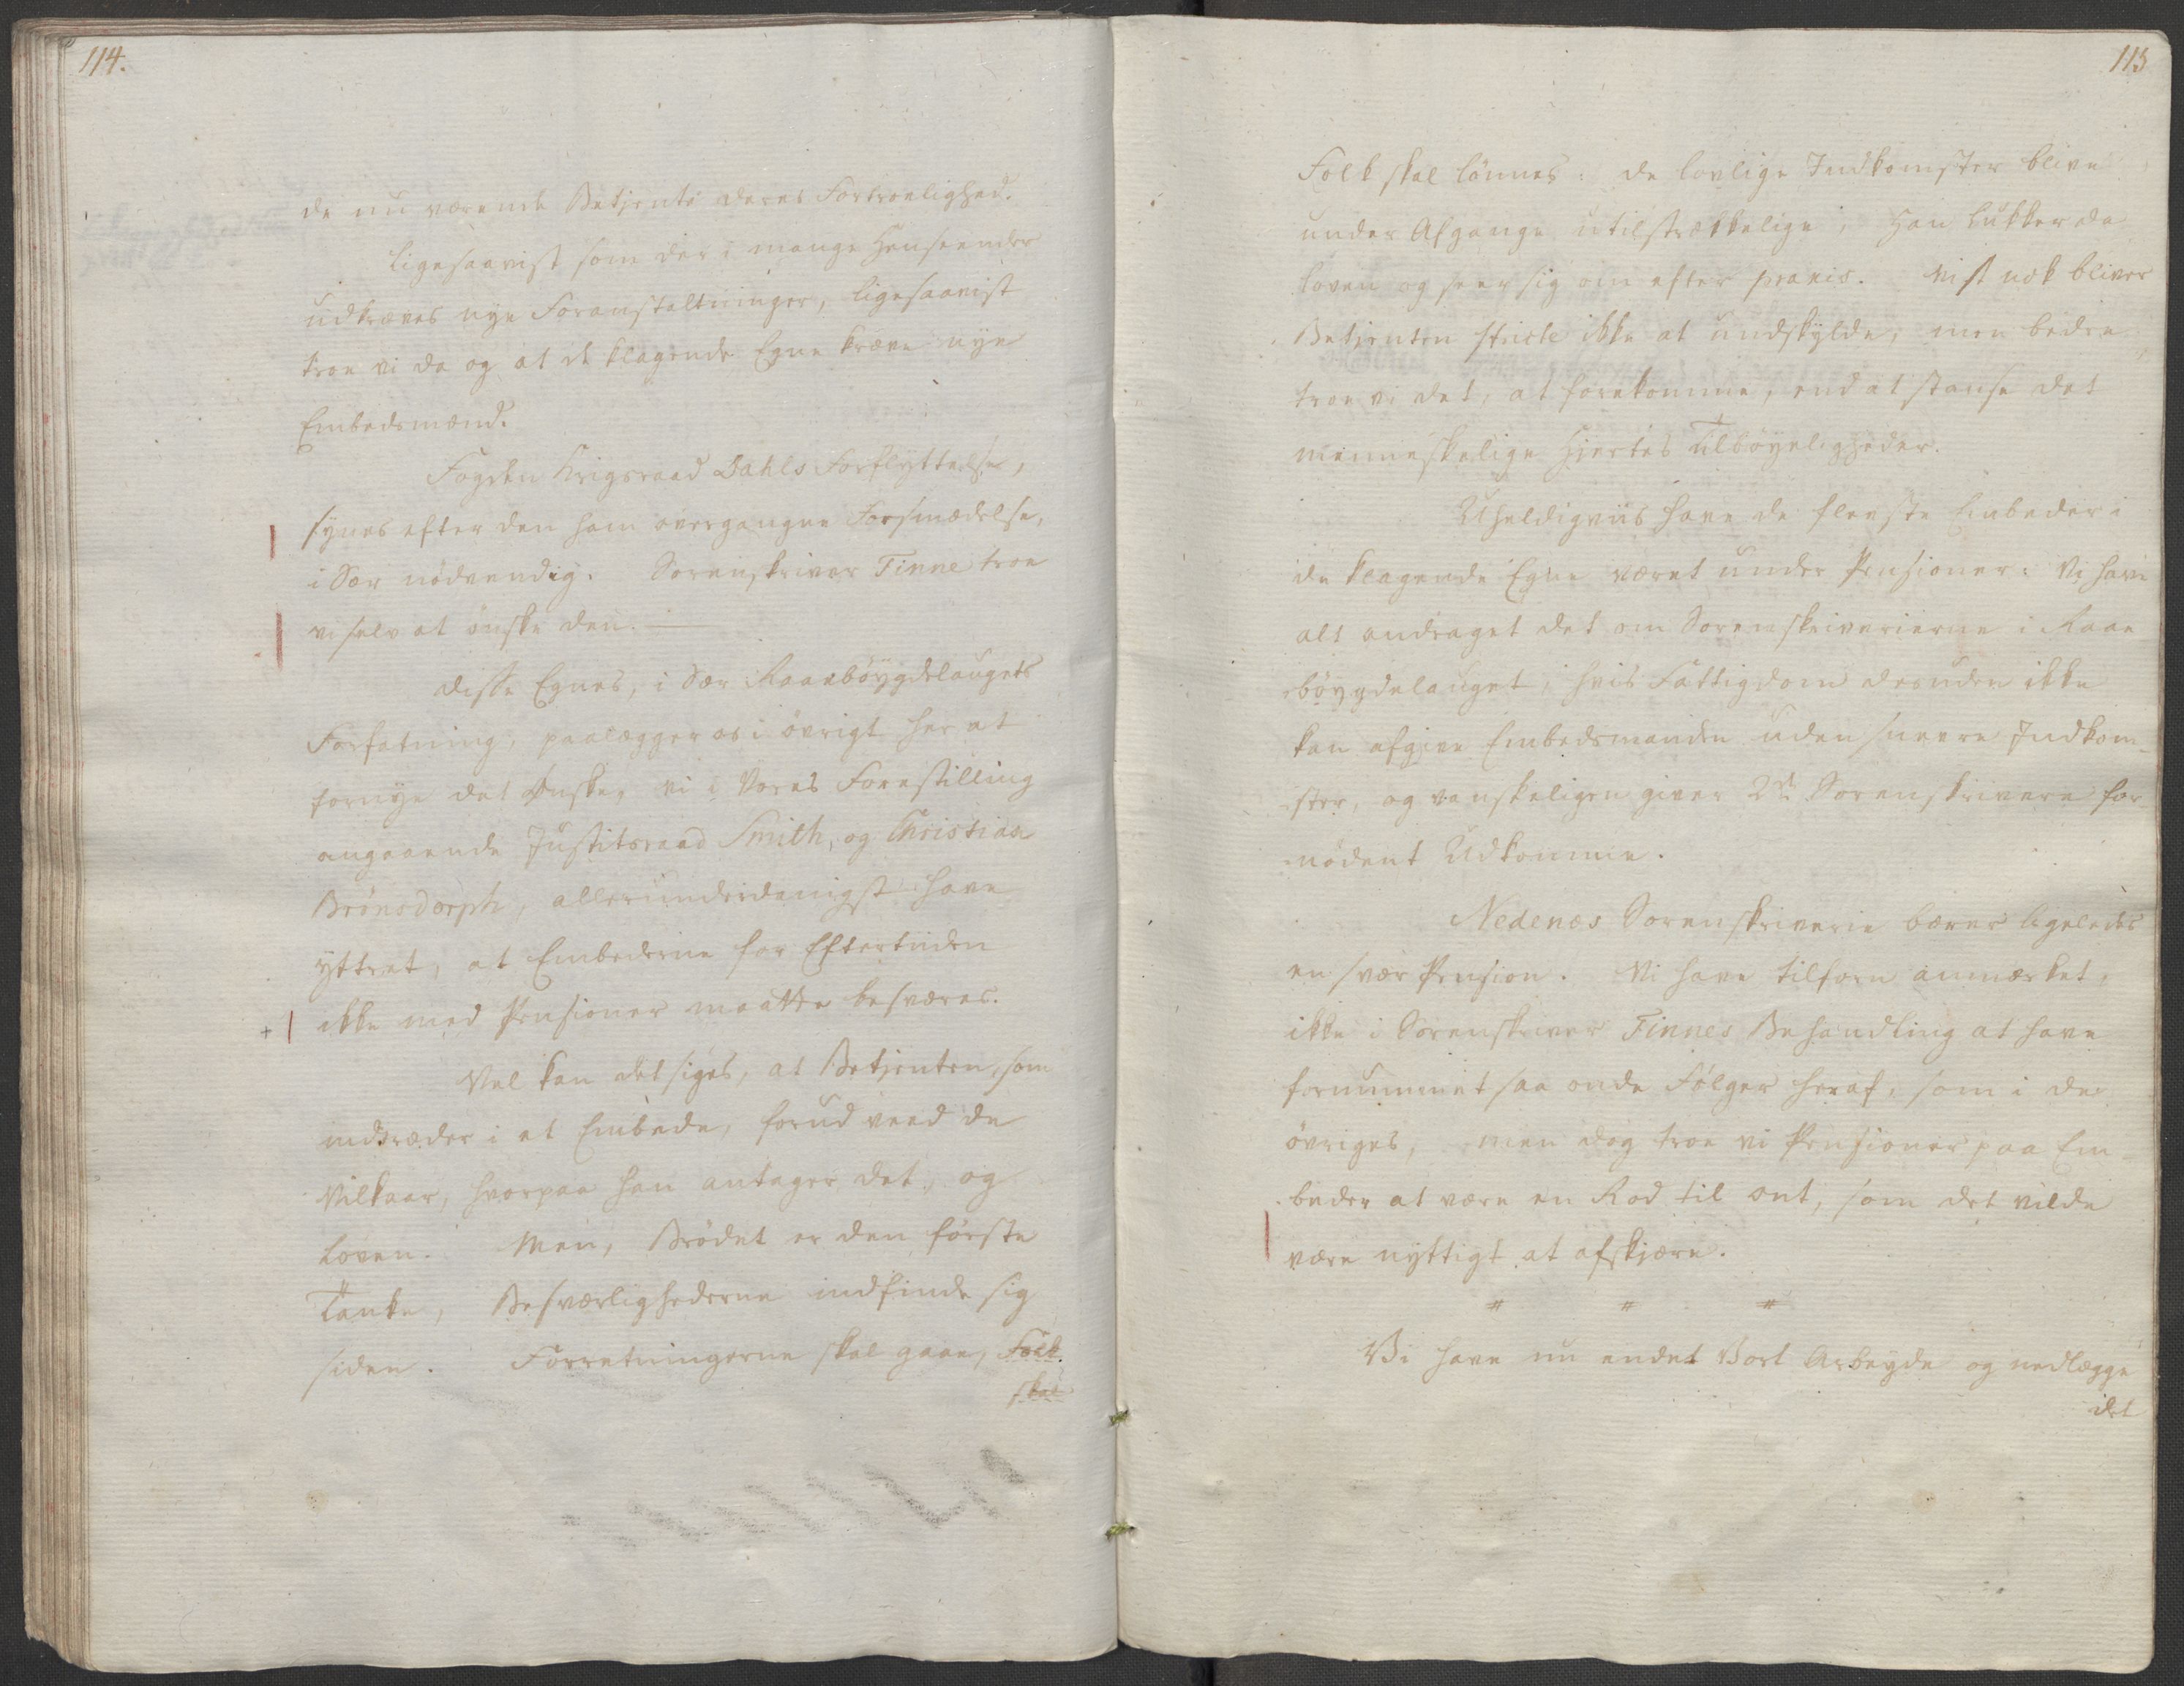 114.
de nu værende Betjente deres Fortroelighed.
Ligesaavist som der i mange Henseender
udkræves nye Foranstaltninger, ligesaavist
troe vi da og at de klagende Egne kræve nye
Embedsmænd.
Fogden Krigsraad Dahls Forflyttelse,
synes efter den ham overgangne Forsmædelse,
i Sær nödvendig. Sorenskriver Finne troe
vi selv at önske den.
Disse Egnes, i Sær Raaböygdelaugets
Forfatning, paalægger os i övrigt her at
fornye det Ønske, vi i Vores Forestilling
angaaende Justitsraad Smith, og Christian
Brönsdorph, allerunderdanigst have
yttret, at Embederne for Eftertiiden
+ ikke med Pensioner maatte besværes.
Vel kan det siges, at Betjenten, som
indtræder i et Embede, forud veed de
Vilkaar, hvorpaa han antager det, og
Loven. Men, Brödet er den förste
Tanke, Besværlighederne indfinde sig
siden. Forretningerne skal gaae, Folk
skal
115
Folk skal lönnes: de lovlige Indkomster blive
under Afgange utilstrækkelige, Han lukker da
Loven og seer sig om efter praxis. Vist nok bliver
Betjenten stricte ikke at undskylde, men bedre
troe vi det, at forekomme, end at standse det
menneskelige Hjertes Tilböyeligheder.
Uheldigviis have de fleeste Embeder i
de klagende Egne været under Pensioner: Vi have
alt andraget det om Sorenskriverierne i Raae
böygdelauget, hvis Fattigdom desuden ikke
kan afgive Embedsmanden uden snevre Indkom-
ster, og vanskeligen giver 2de Sorenskrivere for-
nödent Udkomme.
Nedenæs Sorenskriverie bærer ligeledes
en svær Pension. Vi have tilforn anmærket,
ikke i Sorenskriver Finnes Behandling at have
fornummet saa onde Fölger heraf, som i de
övriges, men dog troe vi Pensioner paa Em-
beder at være en Rod til ont, som det vilde
være nyttigt at afskjære.
# # #
Vi have nu endet Vort Arbeyde og nedlægge
det